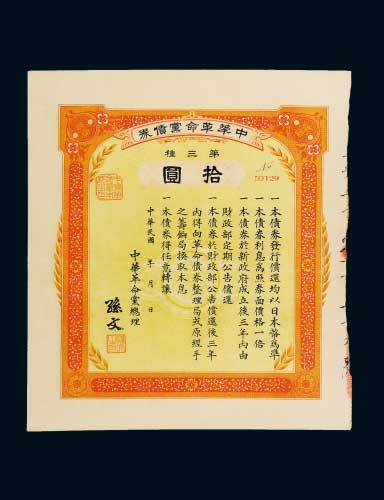 中華革命黨債券
第三種
拾圓
一本債券發行償還均以日本幣為準
一本債券利息為照券面價格一倍
一本債券於新政府成立後三年內由
財政部定期公告償還
一本債券於財政部公告償還後三年
內得向革命債券整理局或原經手
之籌餉局換取本息
一本債券得任意轉讓
中華民國 年 月 日
中華革命黨總理
孫文